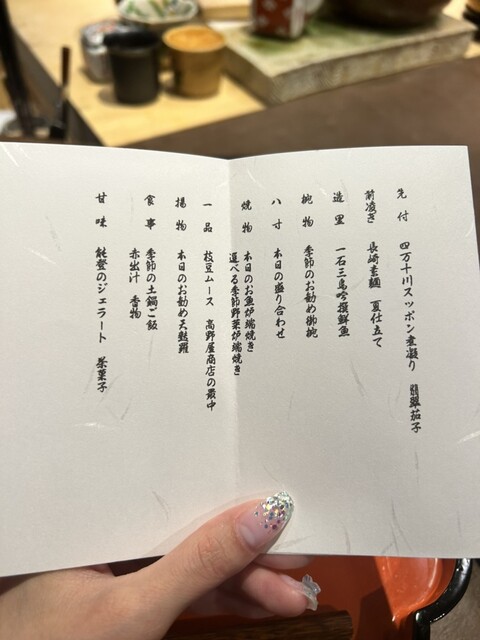 先付 四万十川スッポン煮凝り 翡翠茄子
前凌ぎ 長崎素麺 夏仕立て
造里 一石三鳥吟撰鮮魚
椀物 季節のお勧め御椀
八寸 本日の盛り合わせ
焼物 本日のお魚炉端焼き
選べる季節野菜炉端焼き
一品 枝豆ムース 高野屋商店の最中
揚物 本日のお勧め天麩羅
食事 季節の土鍋ご飯
赤出汁 香物
甘味 能登のジェラート 茶菓子